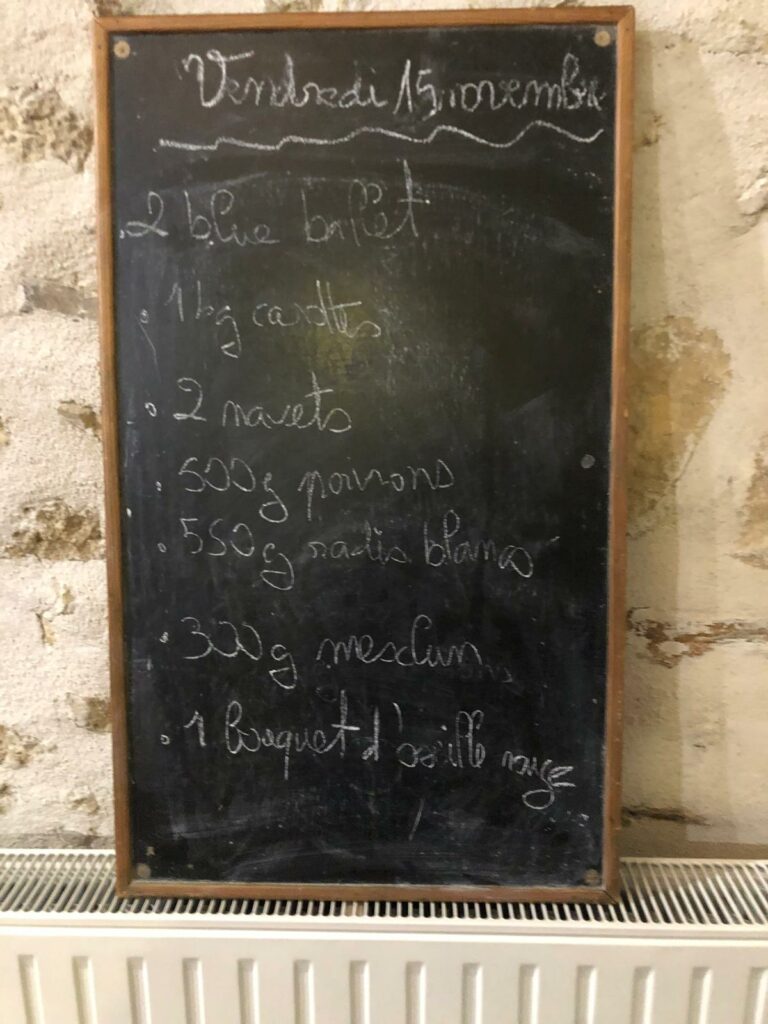 Vendredi 15 novembre
2 blue ballet
1 kg carottes
2 navets
500g poivrons
550g radis blancs
300g mesclun
1 bouquet d'oseille rouge